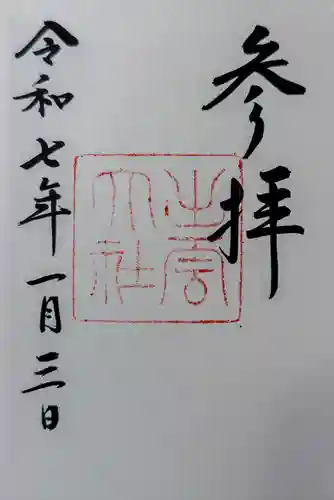 参拝
出雲大社
令和七年一月三日